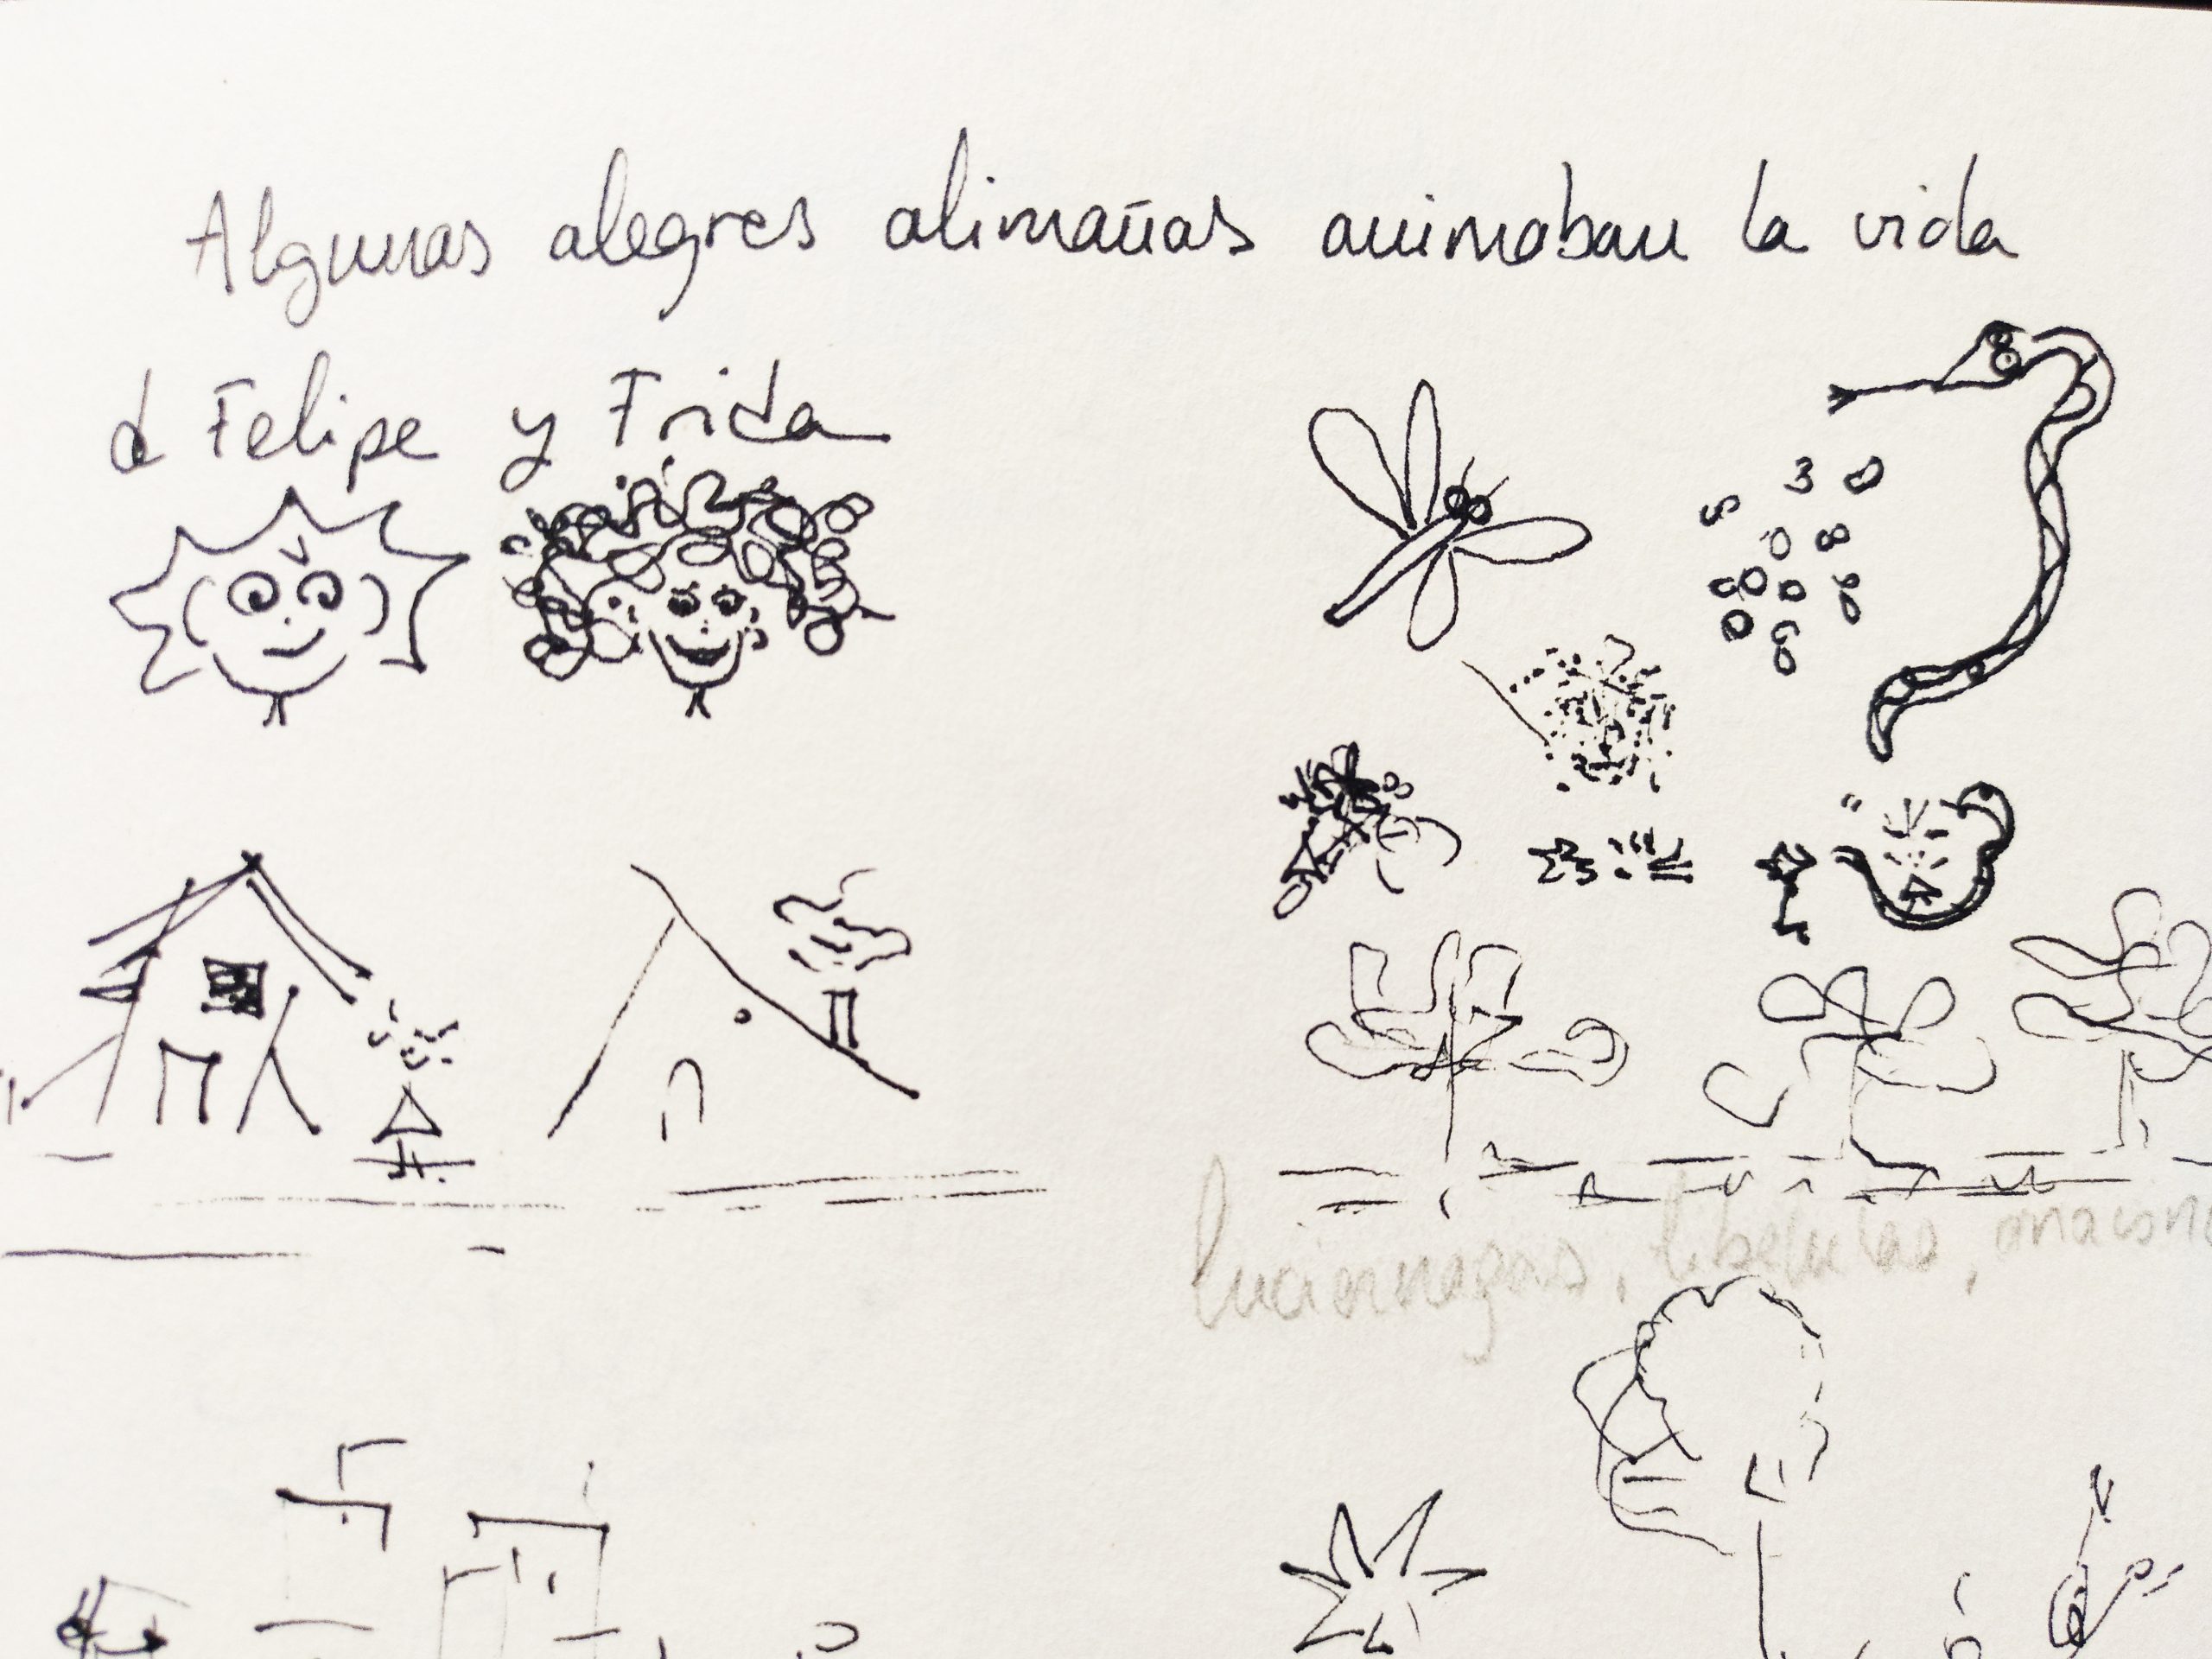 Algunas alegres alimañas animaban la vida
d Felipe y Frida
luciernagas, libelulas, anacon